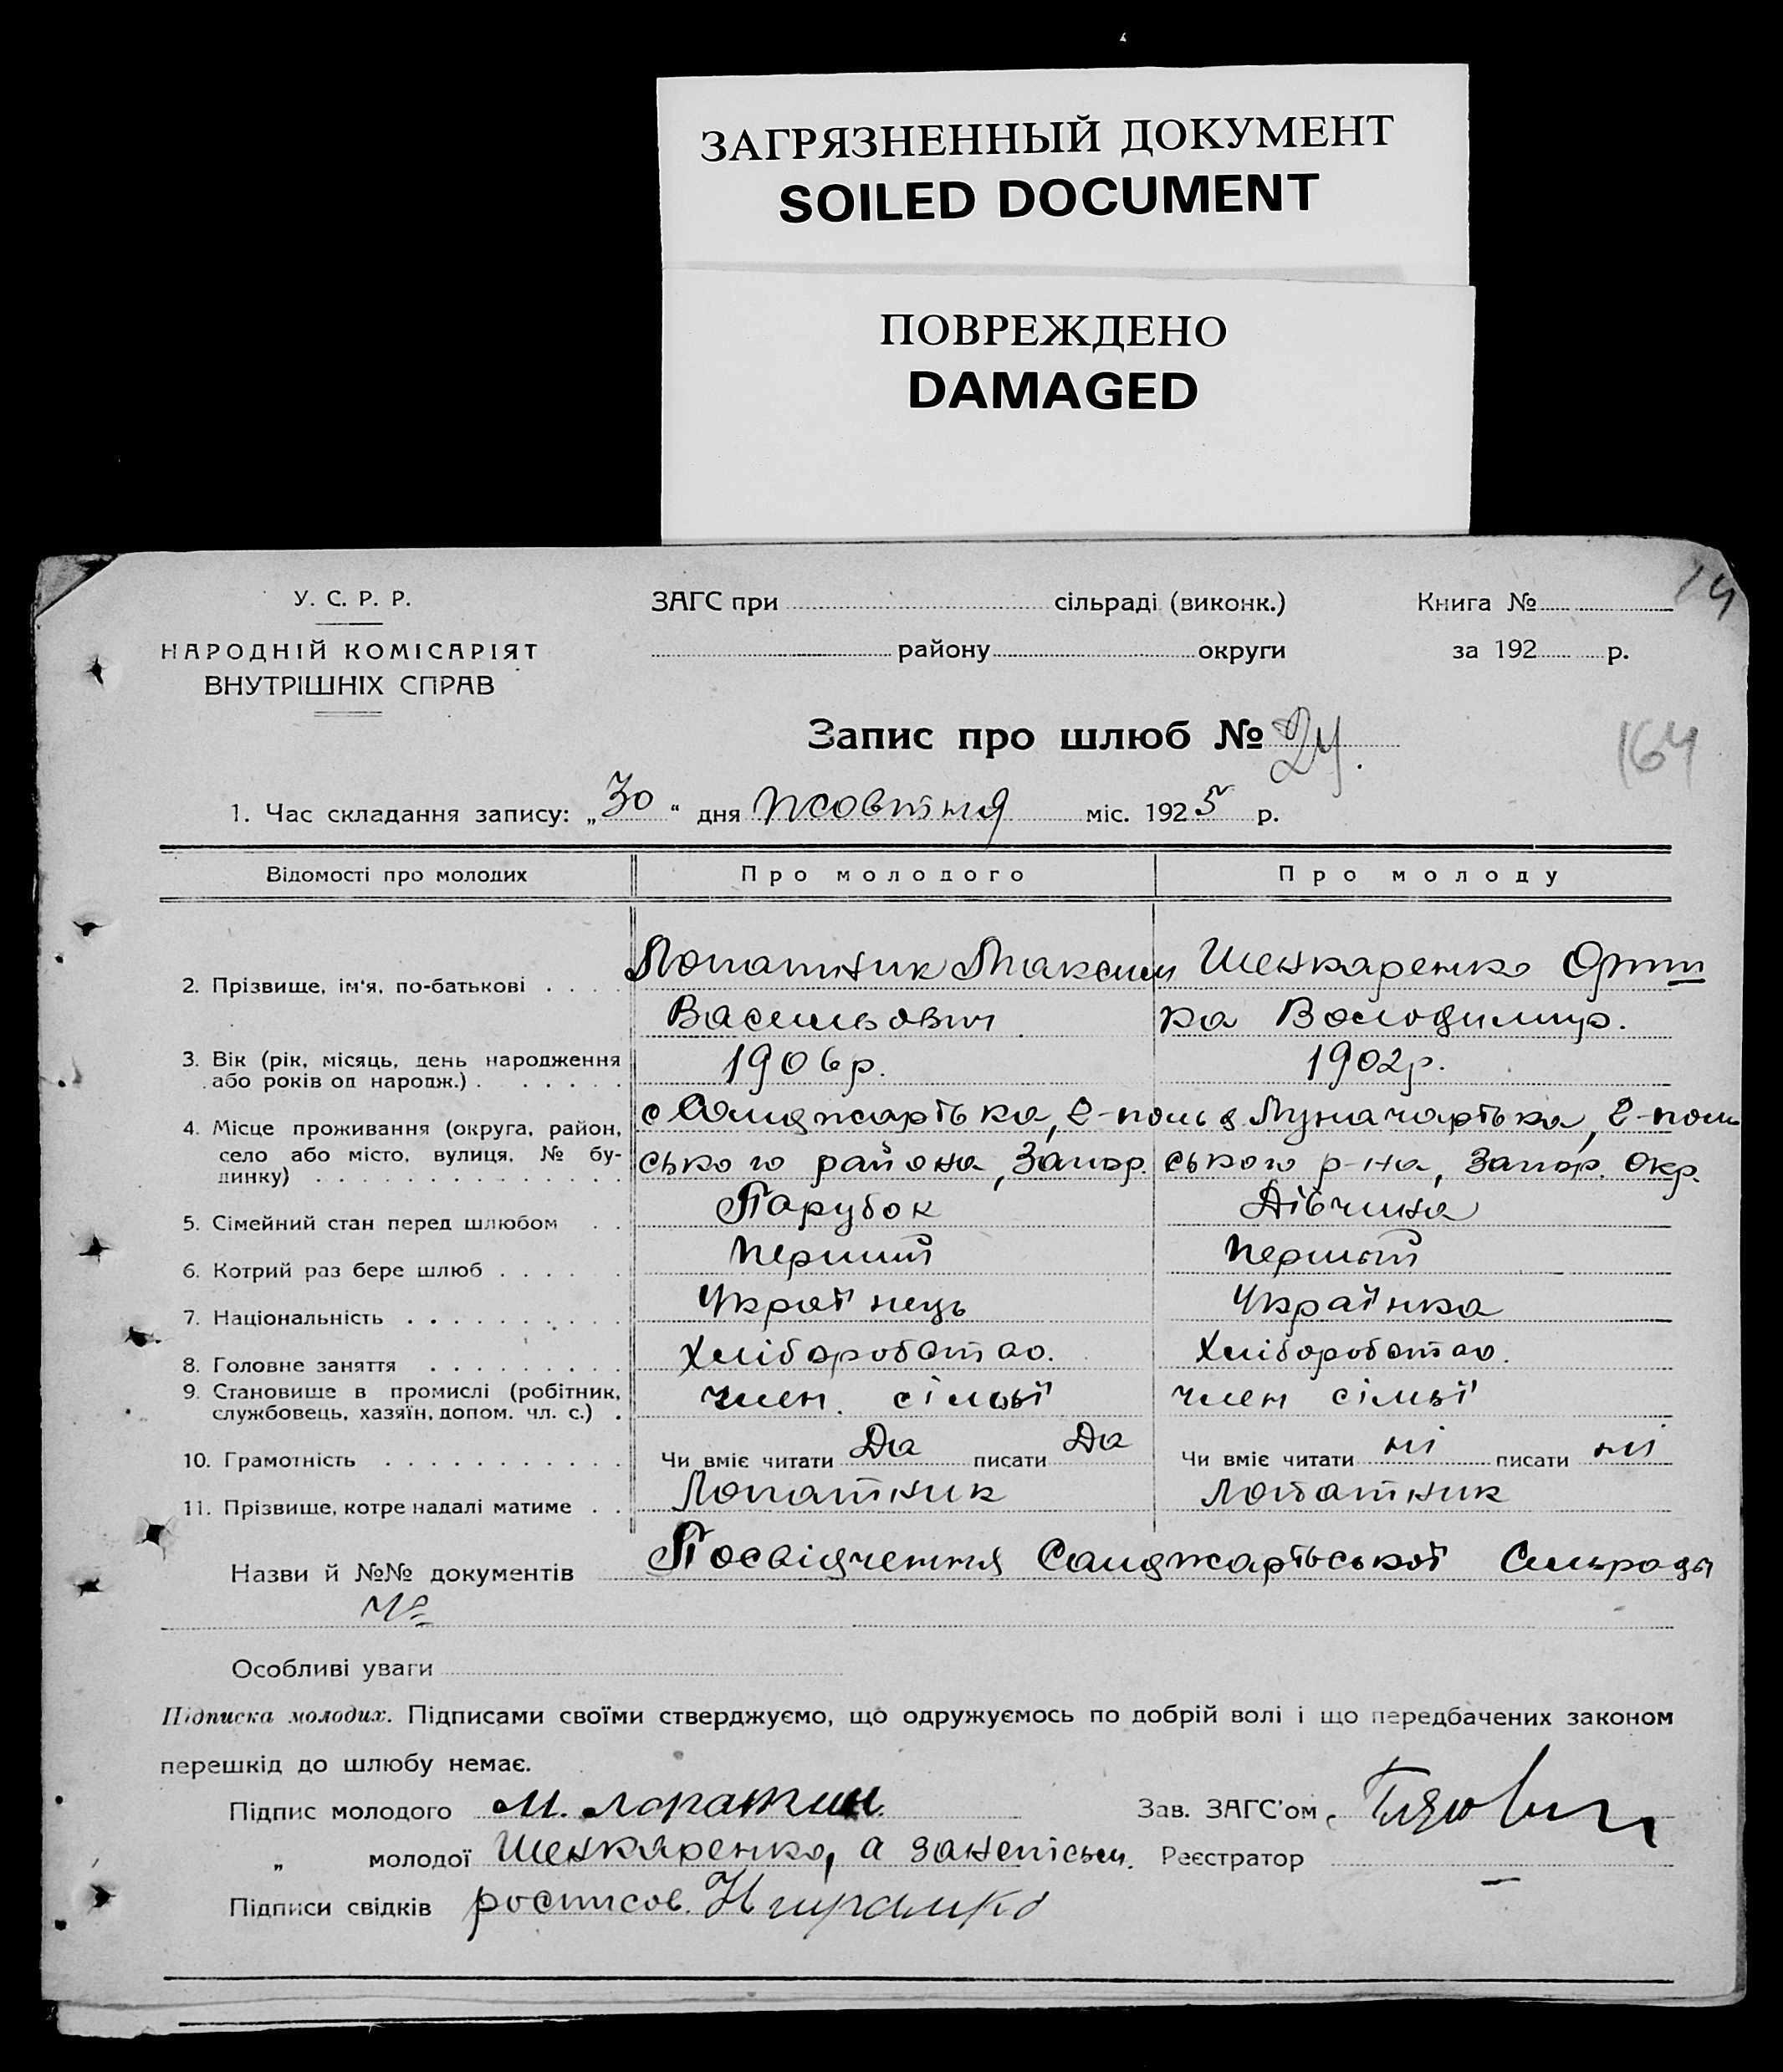 ЗАГРЯЗНЕННЫЙ ДОКУМЕНТ
SOILED DOCUMENT
ПОВРЕЖДЕНО
DAMAGED
14
У. С. Р. Р.
НАРОДНІЙ КОМІСАРІЯТ
ВНУТРІШНІХ СПРАВ
ЗАГС при сільраді (виконк.)
району округи
Книга №
за 192 р.
Запис про шлюб № 24.
164
1. Час складання запису: „30“ дня жовтня міс. 1925 р.
Відомості про молодих Про молодого Про молоду
2. Прізвище, ім'я, по-батькові Лопатник Максим Шенкаренко
Васильович Володимир.
3. Вік (рік, місяць, день народження 1906р. 1902р.
або років од народж.)
4. Місце проживання (округа, район, 2-поль 2-поль
село або місто, вулиця, № бу-
динку) ського района, Запор. ського р-на, Запор. окр.
5. Сімейний стан перед шлюбом Парубок Дівчина
6. Котрий раз бере шлюб Перший Першый
7. Національність Українець Українка
8. Головне заняття Хліборобство. Хліборобство.
9. Становище в промислі (робітник, член. сімьї член сімьї
службовець, хазяїн, допом. чл. с.)
10. Грамотність Чи вміє читати Да писати Да Чи вміє читати ні писати ні
11. Прізвище, котре надалі матиме Лопатник Лопатник
Назви й №№ документів Посвідчення Сильради
№
Особливі уваги
Підписка молодих. Підписами своїми стверджуємо, що одружуємось по добрій волі і що передбачених законом
перешкід до шлюбу немає.
Підпис молодого М. Зав. ЗАГС'ом
„ молодої Шенкаренко, а за Реєстратор
Підписи свідків росписов.